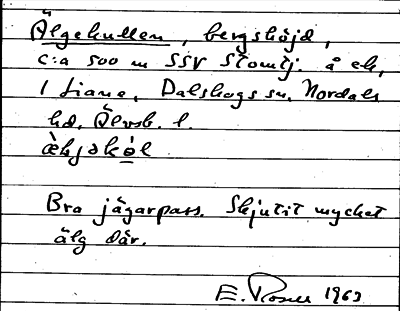 Älgekullen, bergshöjd,
c:a 500 m SSV Stomtj. å ek,
1 Liane, Dalskogs sn, Nordals
hd, Älvsb. l.
ælgjəkòl
Bra jägarpass. Skjutit mycket
älg där.
E. Rosell 1963